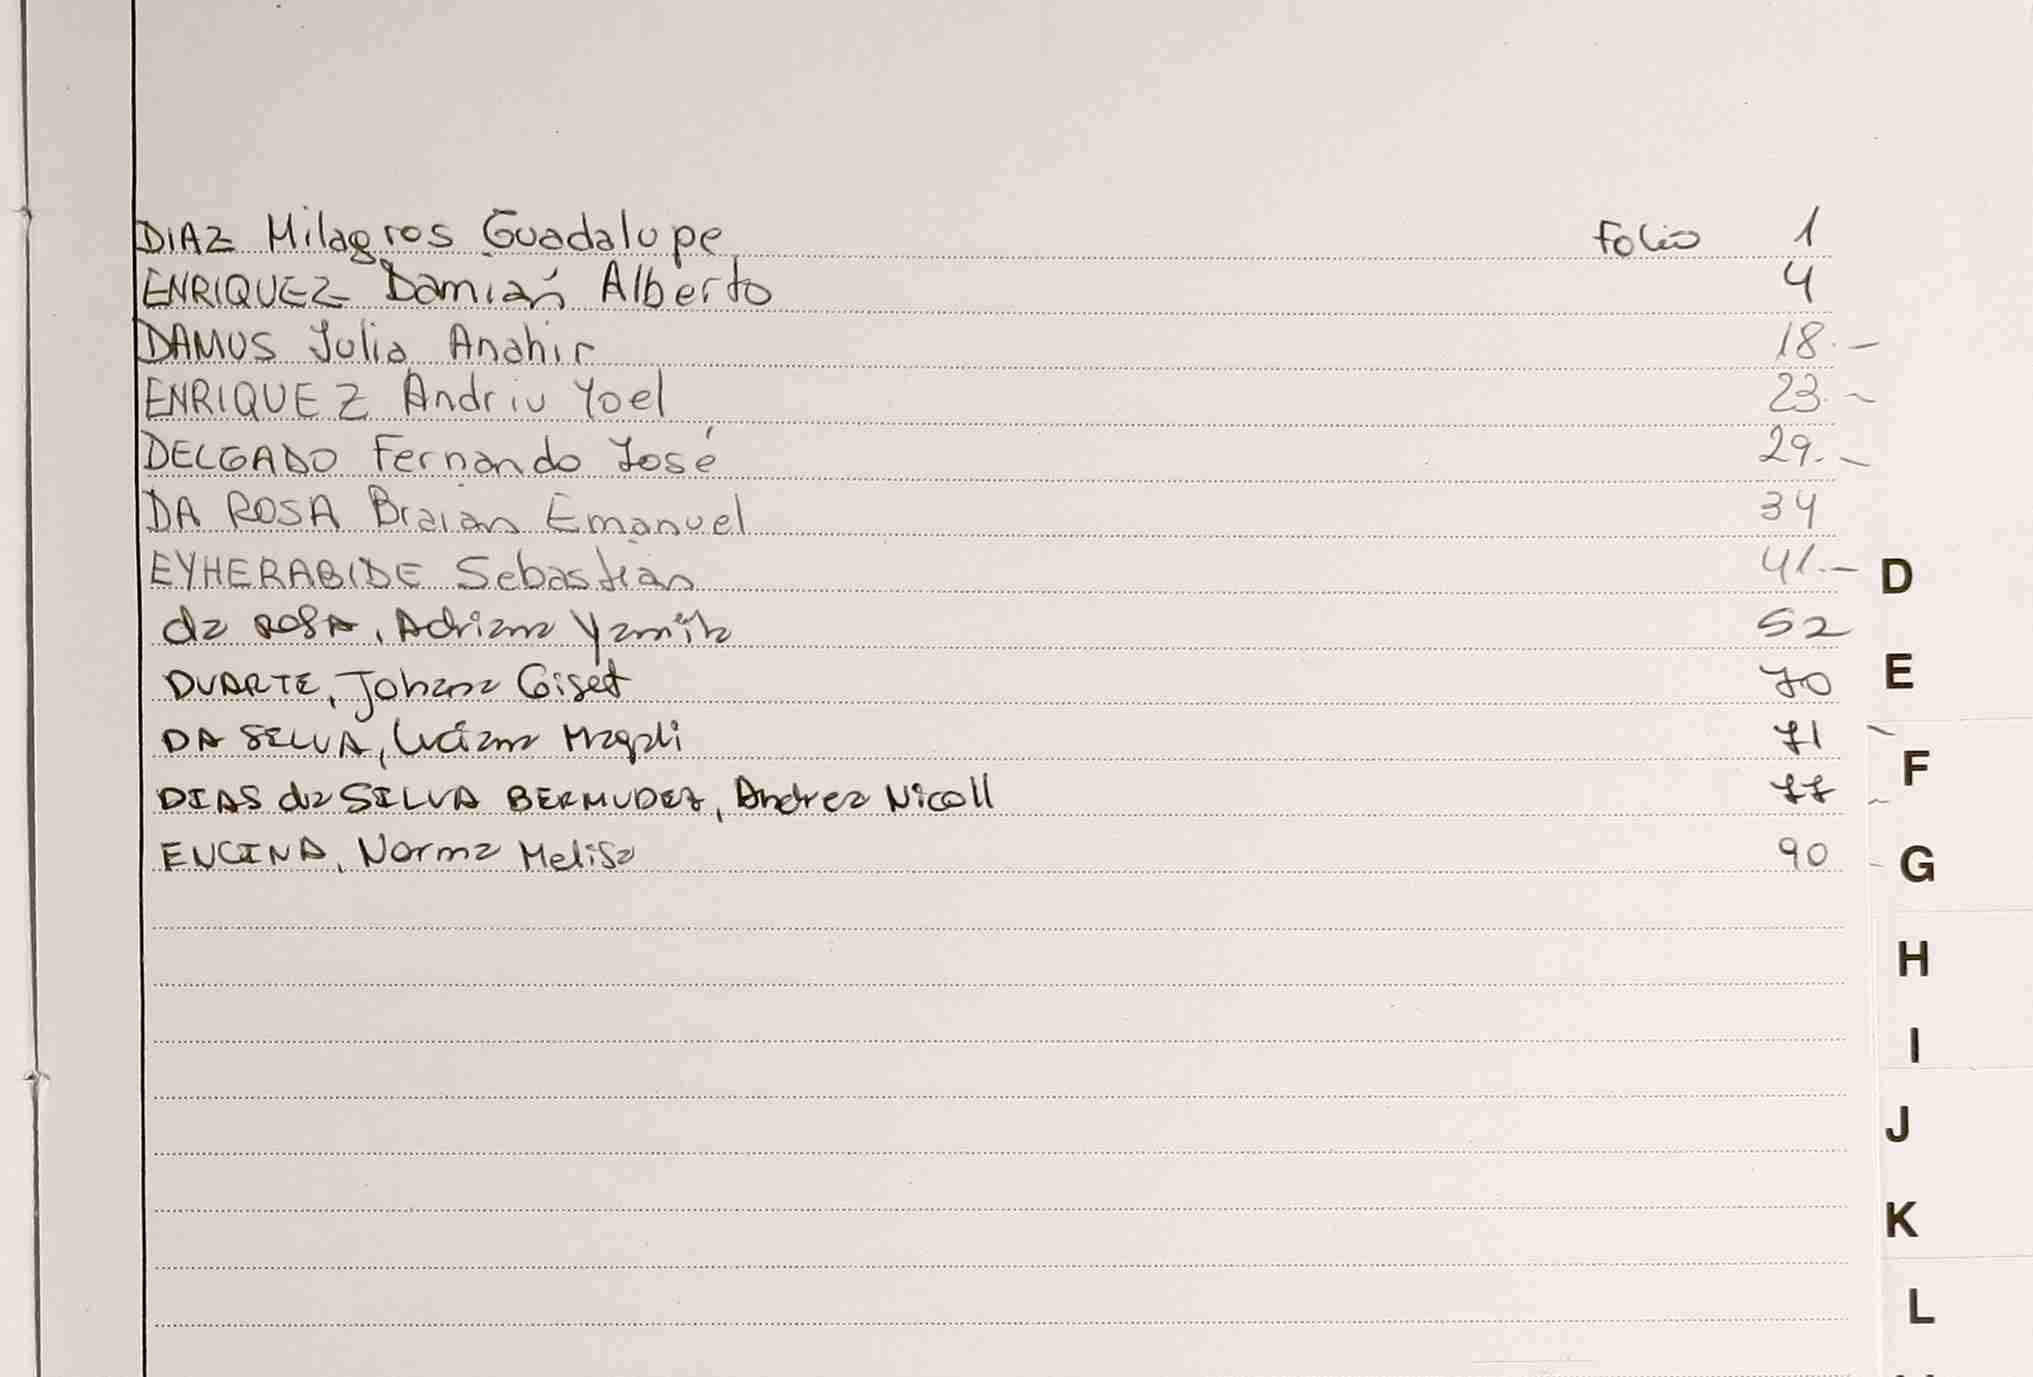 DIAZ Milagros Guadalupe Folio 1
ENRIQUEZ Damián Alberto 4
DAMUS Julia Anahir 18.-
ENRIQUEZ Andriu Yoel 23.-
DELGADO Fernando José 29.-
DA ROSA Braian Emanuel 34
EYHERABIDE Sebastián 41.-
da ROSA, Adriana Yamila 52
DUARTE, Johana Giset 70
DA SELVA, Luciana Magali 71
DIAS da SILVA BERMUDEZ, Andrea Nicoll 77
ENCINA, Norma Melisa 90
D
E
F
G
H
I
J
K
L